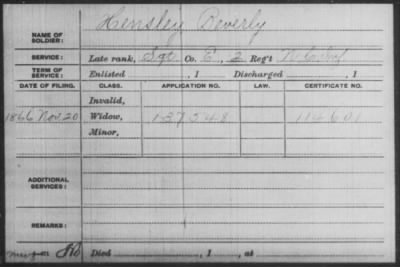 Hensley Beverly
NAME OF SOLDIER:
SERVICE: Late rank, Sgt Co. E, 2 Reg't N.C. Inf
TERM OF SERVICE: Enlisted , 1 Discharged , 1
DATE OF FILING. CLASS. APPLICATION NO. LAW. CERTIFICATE NO.
Invalid,
1866 Nov 20 Widow, 137548 114601
Minor,
ADDITIONAL SERVICES:
REMARKS:
Died , 1 , at